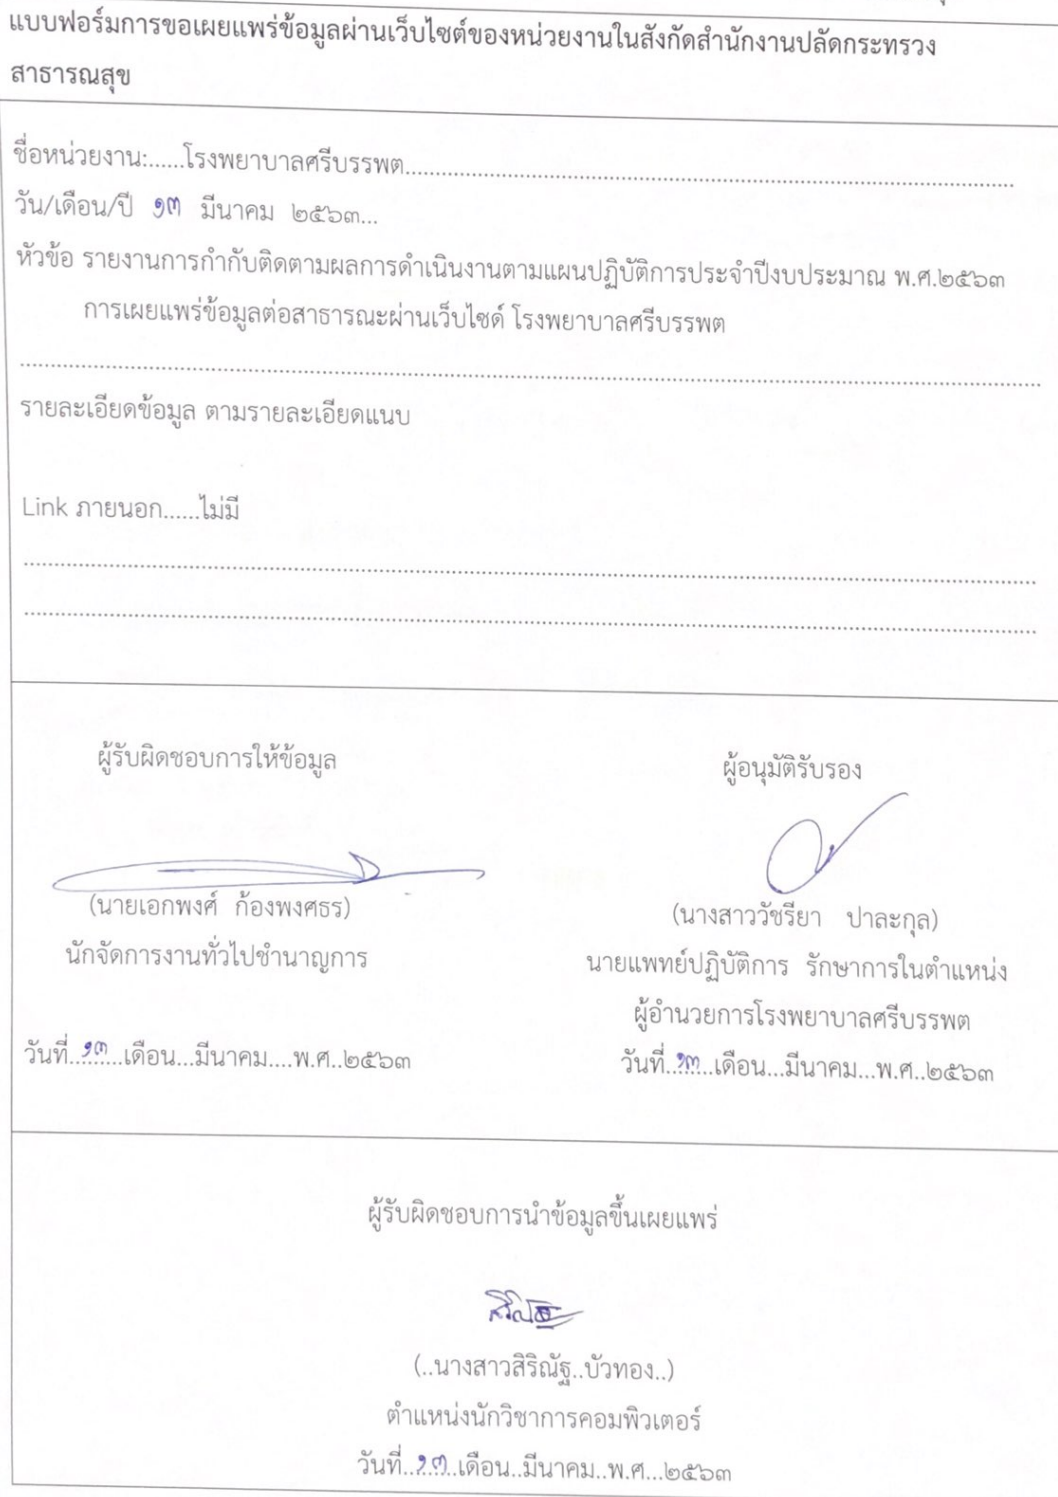 แบบฟอร์มการขอเผยแพร่ข้อมูลผ่านเว็บไซต์ของหน่วยงานในสังกัดสำนักงานปลัดกระทรวง
สาธารณสุข
ชื่อหน่วยงาน:......โรงพยาบาลศรีบรรพต......................................................................................................
วัน/เดือน/ปี ๑๓ มีนาคม ๒๕๖๓...
หัวข้อ รายงานการกำกับติดตามผลการดำเนินงานตามแผนปฏิบัติการประจำปีงบประมาณ พ.ศ.๒๕๖๓
การเผยแพร่ข้อมูลต่อสาธารณะผ่านเว็บไซด์ โรงพยาบาลศรีบรรพต
รายละเอียดข้อมูล ตามรายละเอียดแนบ
Link ภายนอก......ไม่มี
ผู้รับผิดชอบการให้ข้อมูล
ผู้อนุมัติรับรอง
(นายเอกพงศ์ ก้องพงศธร)
(นางสาววัชรียา ปาละกุล)
นักจัดการงานทั่วไปชำนาญการ
นายแพทย์ปฏิบัติการ รักษาการในตำแหน่ง
ผู้อำนวยการโรงพยาบาลศรีบรรพต
วันที่..๑๓...เดือน...มีนาคม....พ.ศ..๒๕๖๓
วันที่..๑๓...เดือน...มีนาคม...พ.ศ..๒๕๖๓
ผู้รับผิดชอบการนำข้อมูลขึ้นเผยแพร่
(..นางสาวสิริณัฐ..บัวทอง..)
ตำแหน่งนักวิชาการคอมพิวเตอร์
วันที่..๑๓..เดือน..มีนาคม..พ.ศ...๒๕๖๓